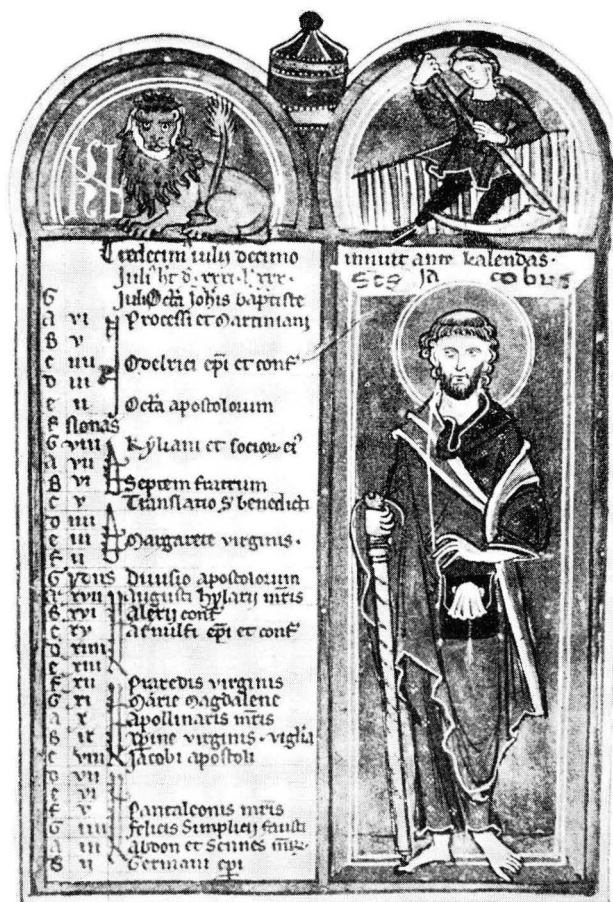 KL
Tredecim iulij decimo innuit ante kalendas.
Iuli' ht d. xxxi. l' xxx.
Scs Ja cobus
G Iulij Octa Johis baptiste
a vi Processi et Martiniani
B v
c iiii Odelrici epi et conf
d iii
e ii Octa apostolorum
f Nonas
G viii Kyliani et socior ei'
a vii
B vi Septem fratrum
c v Translatio S' benedicti
d iiii
e iii Margarete virginis.
f ii
G ydus Divisio apostolorum
a xvii augusti hylarij mris
B xvi Alexii conf
c xv arnulfi epi et conf
d xiiii
e xiii
f xii Praxedis virginis
G xi Marie Magdalene
a x apollinaris mris
B ix xpine virginis. viglia
c viii Jacobi apostoli
d vii
e vi
f v Pantaleonis mris
G iiii felicis Simplicij fausti
a iii Abdon et Sennes
B ii Germani epi